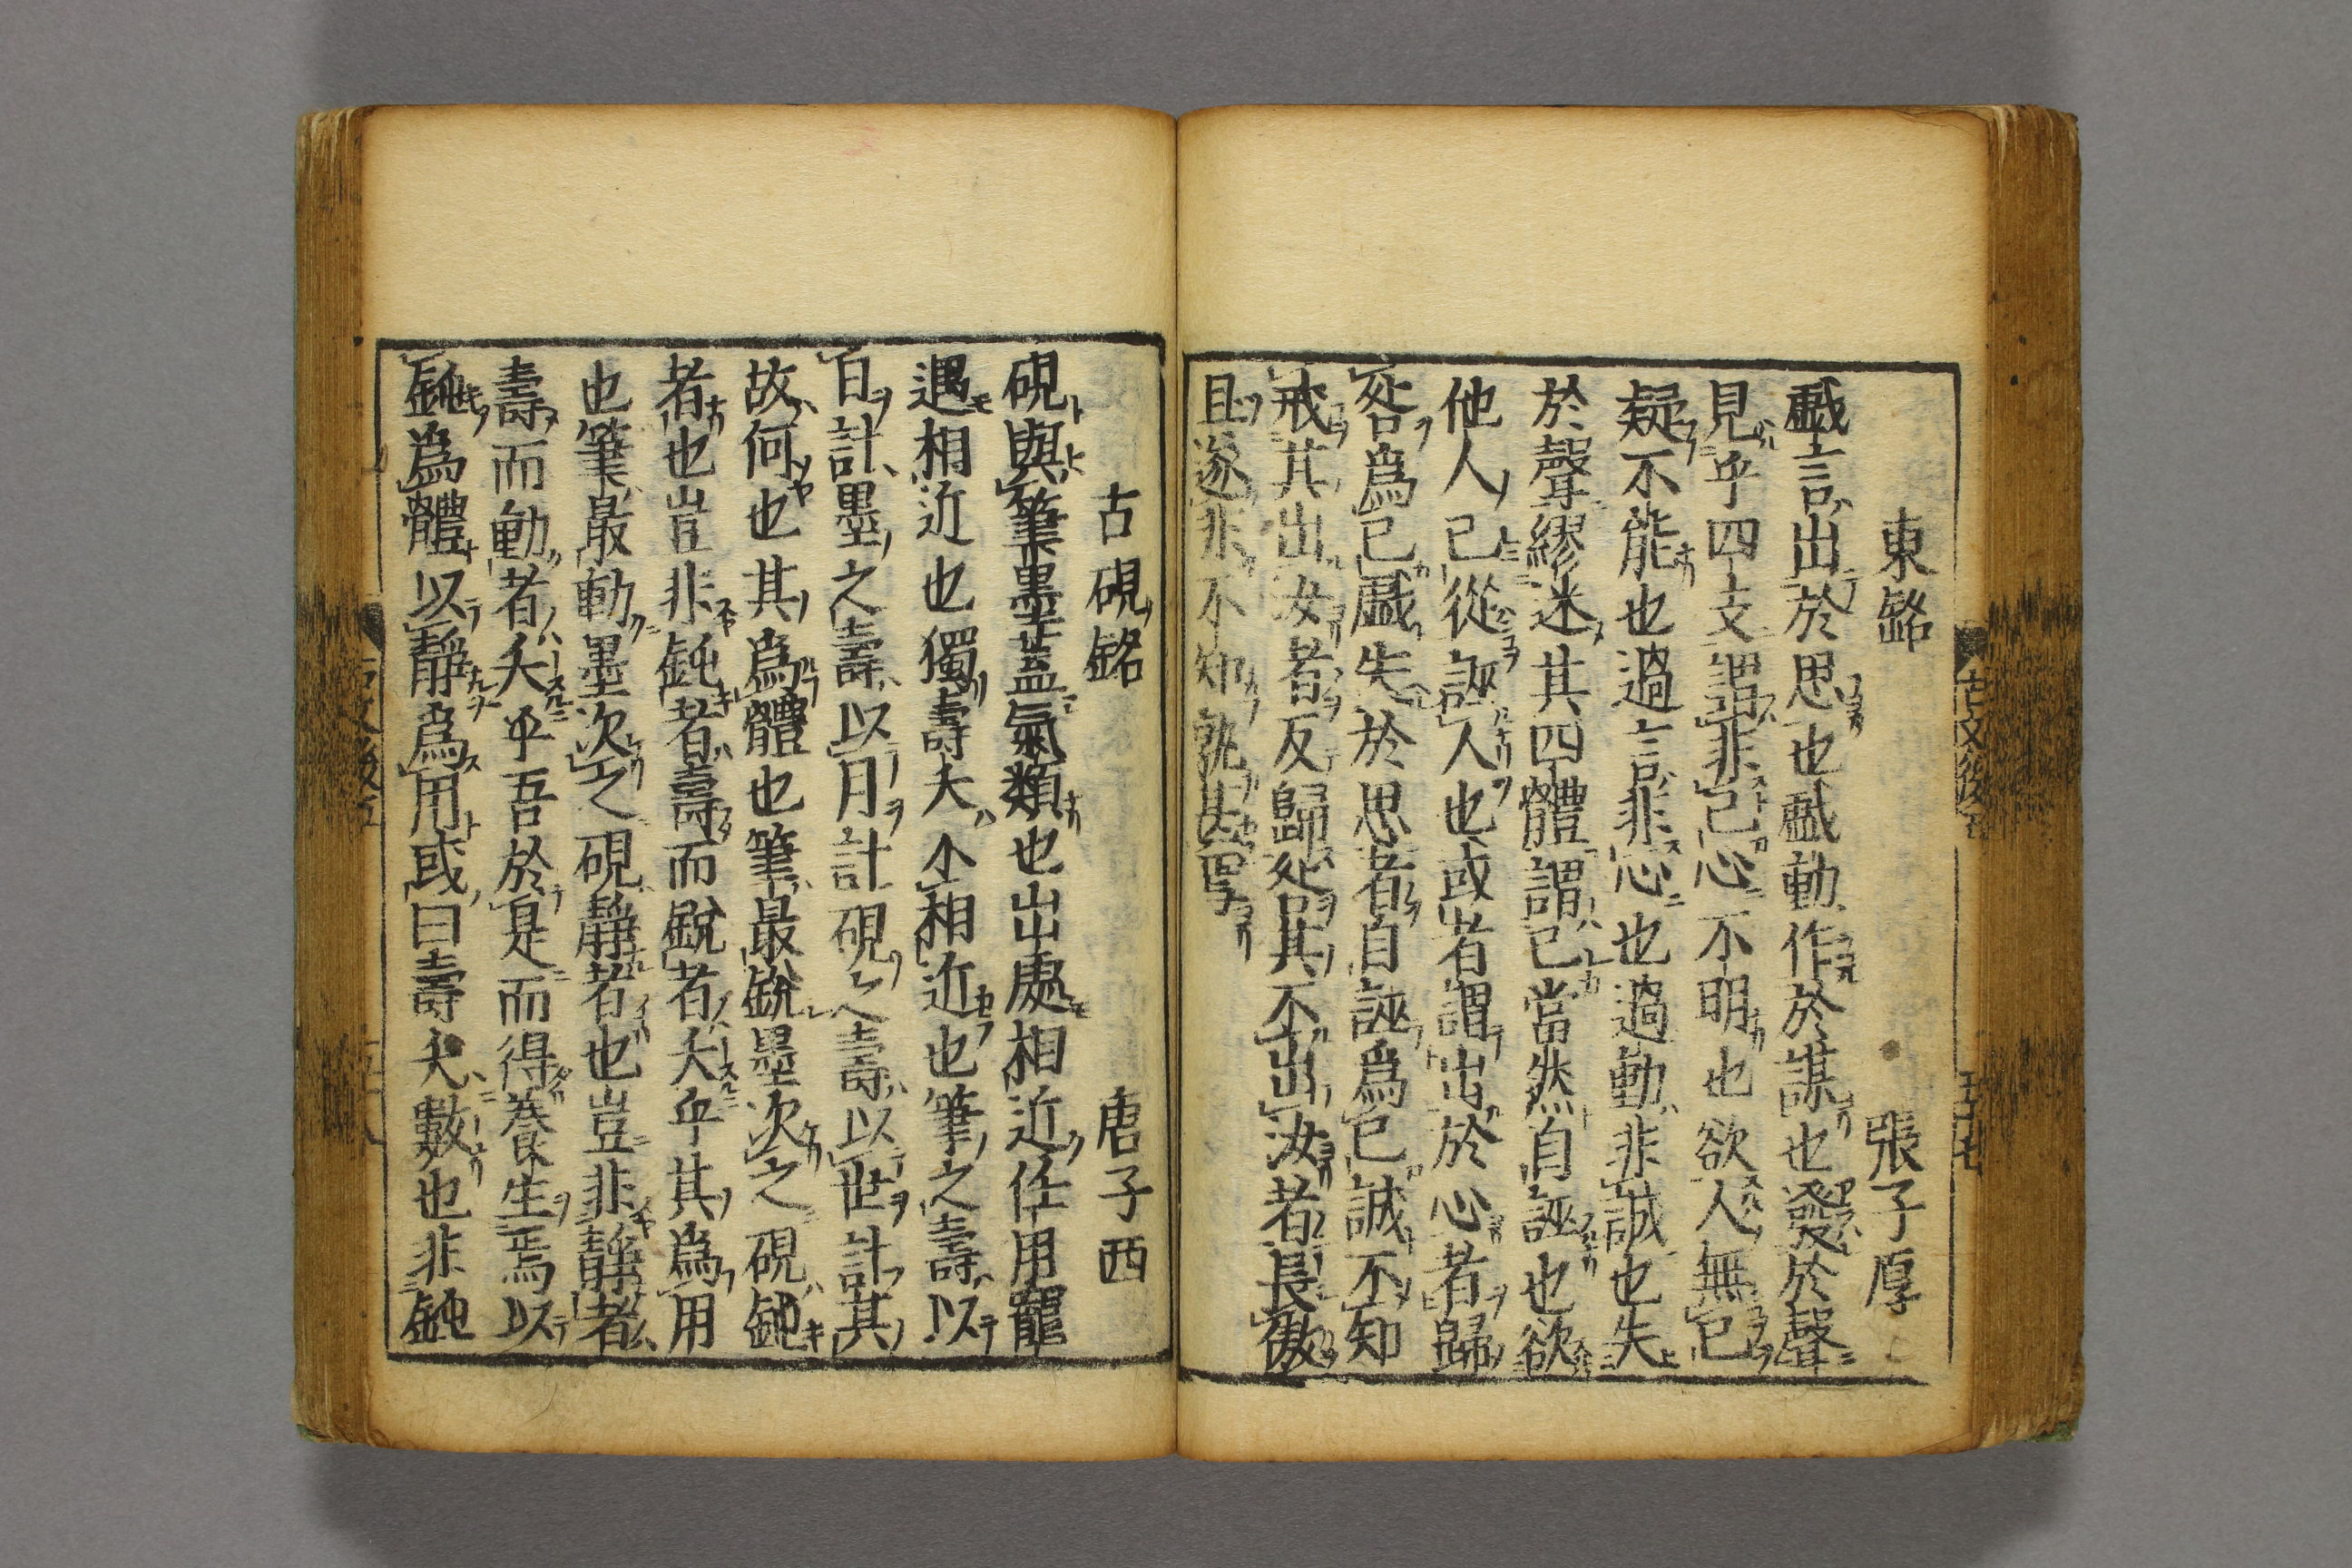 東銘　張子厚
戲言出於思也戲動作於謀也發於聲
見乎四支謂非己心不明也欲人無己
疑不能也過言非心也過動非誠也失
於聲繆迷其四體謂己當然自誣也欲
他人己從誣人也或者謂出於心者歸
咎爲己戲失於思者自誣爲己誠不知
戒其出汝者反歸咎其不出汝者長傲
且遂非不知孰甚焉
古硯銘　唐子西
硯與筆墨蓋氣類也出處相近任用寵
遇相近也獨壽夭不相近也筆之壽以
日計墨之壽以月計硯之壽以世計其
故何也其爲體也筆最銳墨次之硯鈍
者也豈非鈍者壽而銳者夭乎其爲用
也筆最動墨次之硯靜者也豈非靜者
壽而動者夭乎吾於是而得養生焉以
鈍爲體以靜爲用或曰壽夭數也非鈍